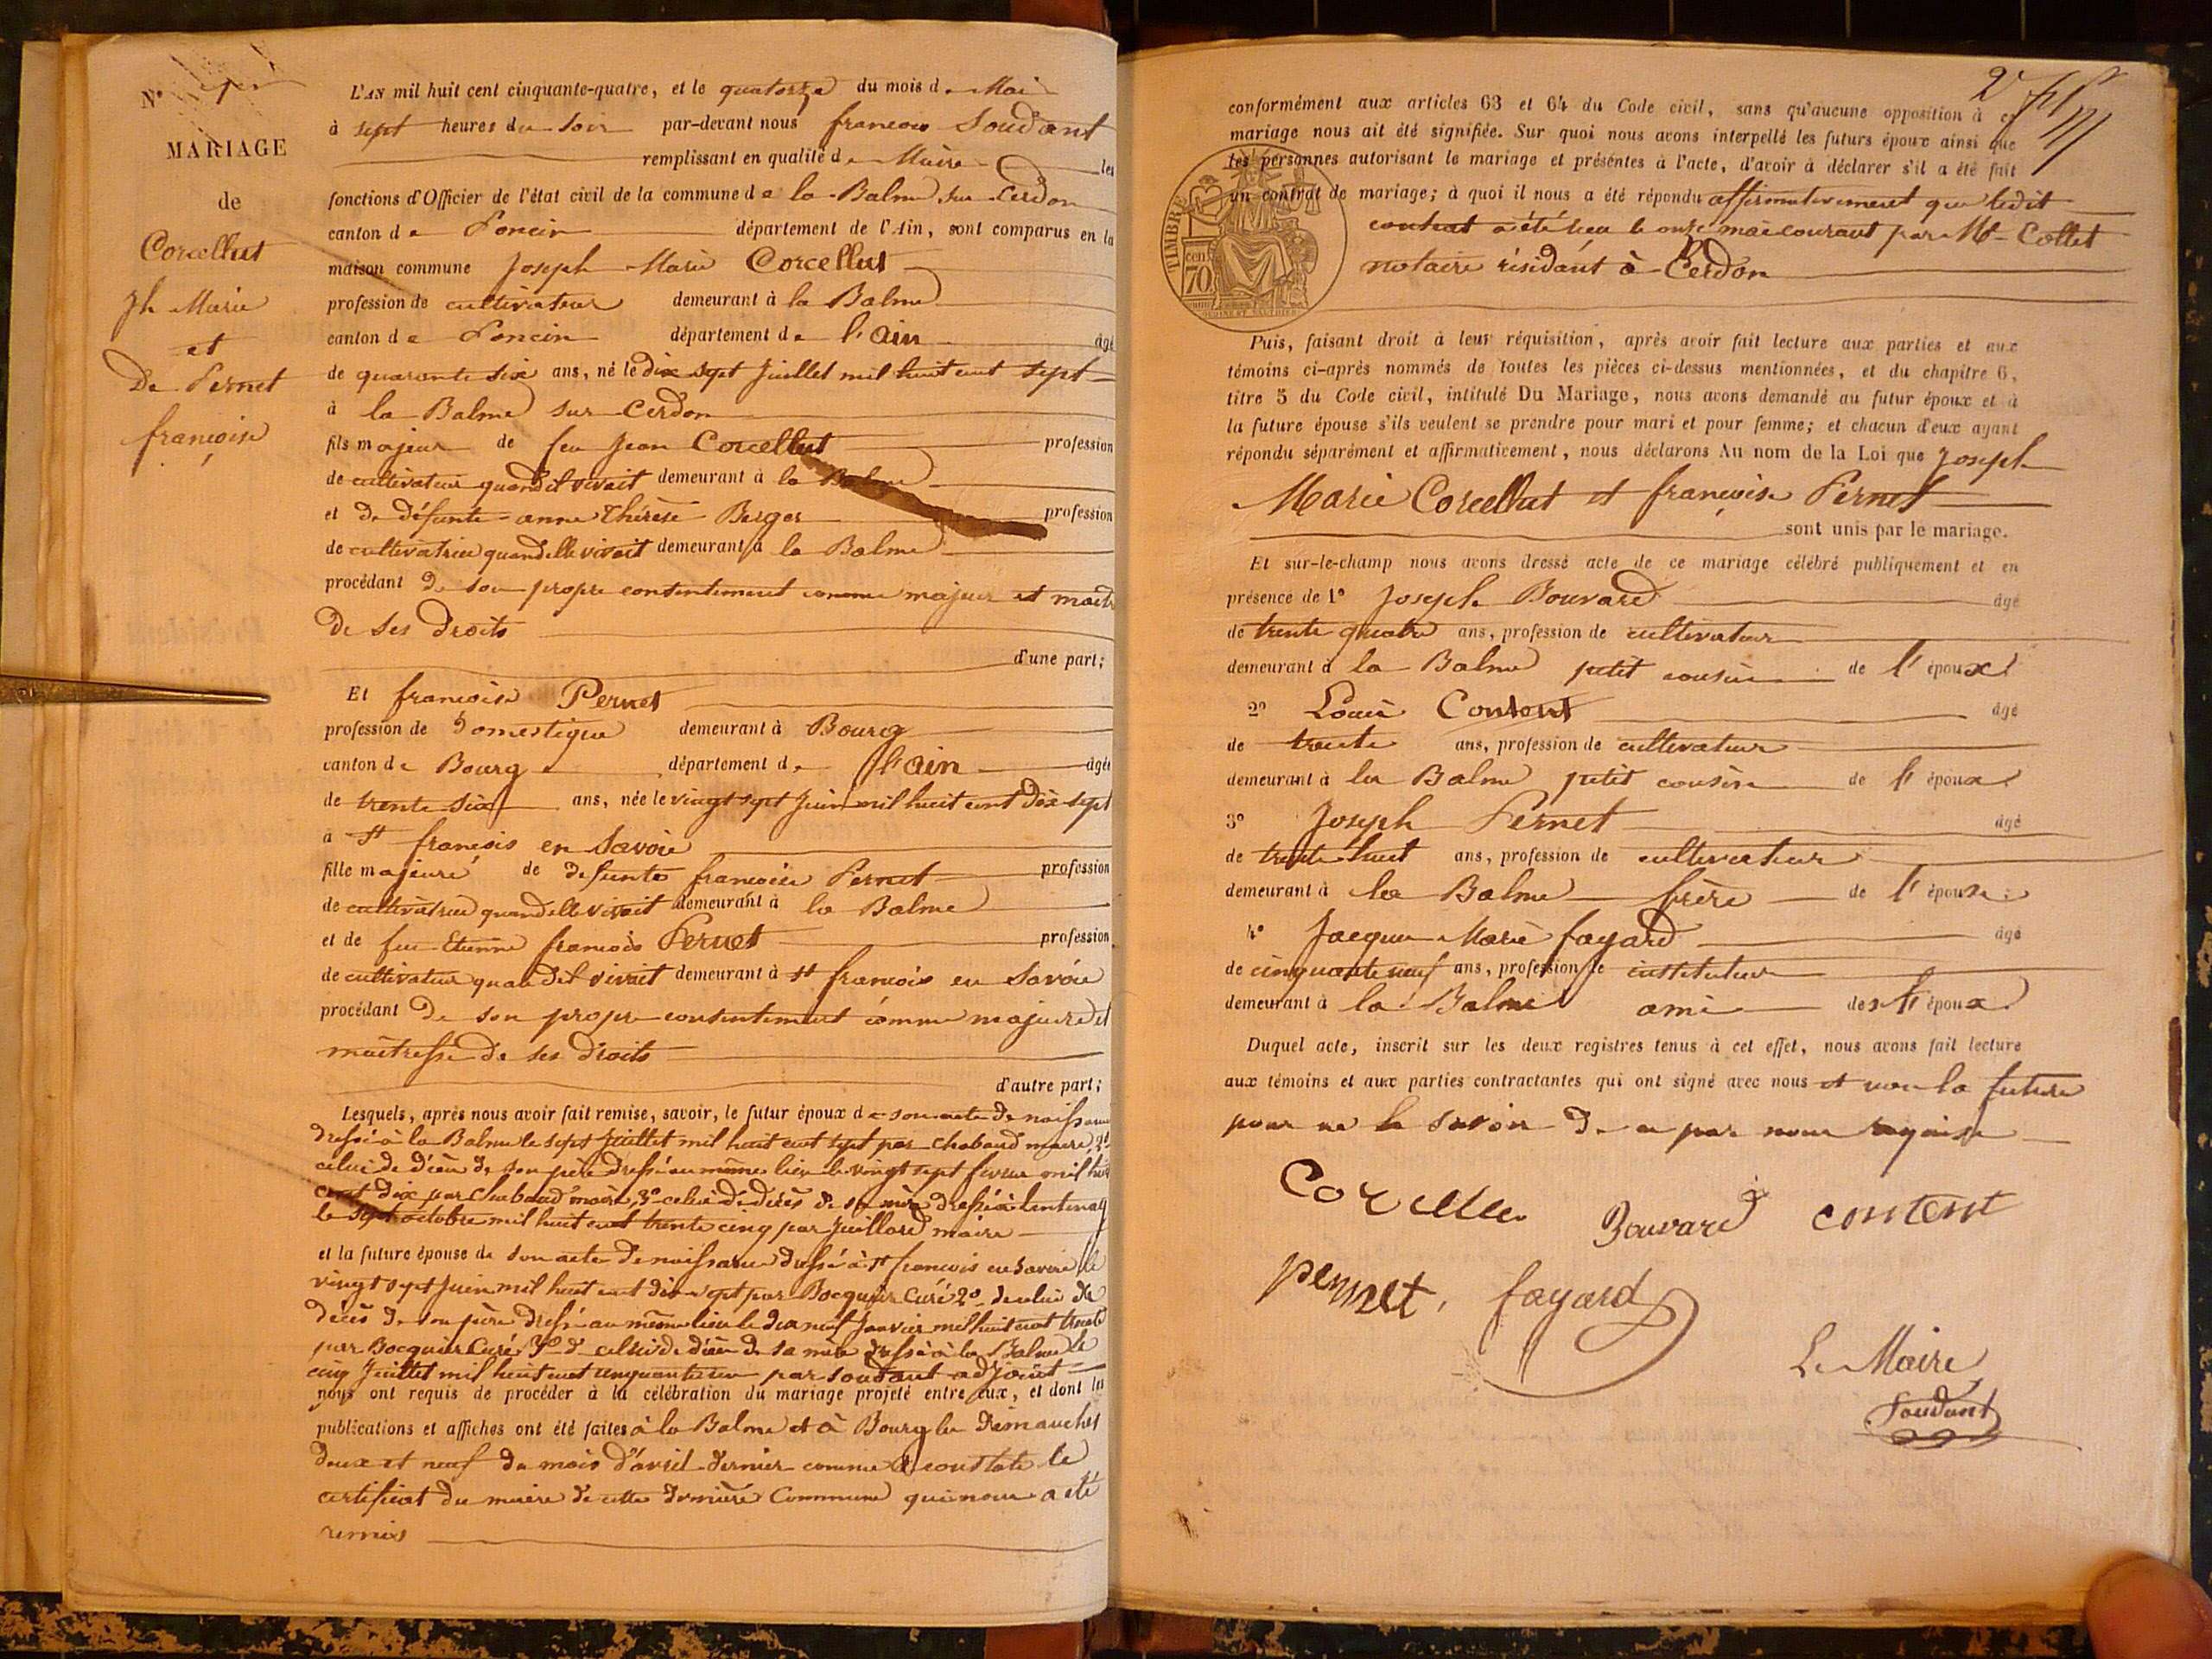 N° 1er
MARIAGE
de
Corcellut
Jh Marie
et
De Pernet
françoise
L'AN mil huit cent cinquante-quatre, et le quatorze du mois de Mai
à sept heures du soir par-devant nous francois Soudant
remplissant en qualité de Maire les
fonctions d'Officier de l'état civil de la commune de la Balme sur Cerdon
canton de Poncin département de l'Ain, sont comparus en la
maison commune Joseph Marie Corcellut
profession de cultivateur demeurant à la Balme
canton de Poncin département de l'Ain âgé
de quarante six ans, né le dix sept Juillet mil huit cent sept
à la Balme sur Cerdon
fils majeur de feu Jean Corcellut profession
de cultivateur quand il vivait demeurant à la Balme
et de défunte anne Thérèse Berger profession
de cultivatrice quand elle vivait demeurant à la Balme
procédant de son propre consentement comme majeur et maitre
de ses droits
d'une part;
Et francoise Pernet
profession de domestique demeurant à Bourg
canton de Bourg département de l'ain âgée
de trente six ans, née le vingt sept juin mil huit cent dix sept
à St francois en Savoie
fille majeure de defunte francoise Pernet profession
de cultivatrice quand elle vivait demeurant à la Balme
et de feu Etienne francois Pernet profession
de cultivateur quand il vivait demeurant à St francois en Savoie
procédant de son propre consentement comme majeure et
maitresse de ses droits
d'autre part;
Lesquels, après nous avoir fait remise, savoir, le futur époux de son acte de naissance
dressé à la Balme le sept Juillet mil huit cent sept par Chaband maire, 2°
celui de décès de son père dressé au même lieu le vingt sept fevrier mil huit
cent dix par Chaband maire, 3° celui de décès de sa mère dressé à
le sept octobre mil huit cent trente cinq par Juillard maire
et la future épouse de son acte de naissance dressé à St francois en Savoie le
vingt sept Juin mil huit cent dix sept par Bocquin Curé 2° de celui de
décès de son père dressé au même lieu le dix neuf Janvier mil huit cent trente
par Bocquin Curé 3° de celui de décès de sa mère dressé à la Balme le
cinq Juillet mil huit cent cinquante un par Soudant adjoint
nous ont requis de procéder à la célébration du mariage projeté entre eux, et dont les
publications et affiches ont été faites à la Balme et à Bourg les Dimanches
deux et neuf du mois d'avril dernier comme le constate le
certificat du maire de cette dernière Commune qui nous a été
remis
2
conformément aux articles 63 et 64 du Code civil, sans qu'aucune opposition à ce
mariage nous ait été signifiée. Sur quoi nous avons interpellé les futurs époux ainsi que
les personnes autorisant le mariage et présentes à l'acte, d'avoir à déclarer s'il a été fait
un contrat de mariage; à quoi il nous a été répondu affirmativement que ledit
contrat a été reçu le onze mai courant par Me Collet
notaire résidant à Cerdon
TIMBRE
cen
70
Puis, faisant droit à leur réquisition, après avoir fait lecture aux parties et aux
témoins ci-après nommés de toutes les pièces ci-dessus mentionnées, et du chapitre 6,
titre 5 du Code civil, intitulé Du Mariage, nous avons demandé au futur époux et à
la future épouse s'ils veulent se prendre pour mari et pour femme; et chacun d'eux ayant
répondu séparément et affirmativement, nous déclarons Au nom de la Loi que Joseph
Marie Corcellut et françoise Pernet
sont unis par le mariage.
Et sur-le-champ nous avons dressé acte de ce mariage célébré publiquement et en
présence de 1° Joseph Bouvard âgé
de trente quatre ans, profession de cultivateur
demeurant à la Balme petit cousin de l'époux
2° Louis Content âgé
de trente ans, profession de cultivateur
demeurant à la Balme petit cousin de l'époux
3° Joseph Pernet âgé
de trente huit ans, profession de cultivateur
demeurant à la Balme frère de l'épouse
4° Jacque Marie fayard âgé
de cinquante neuf ans, profession de instituteur
demeurant à la Balme ami des époux
Duquel acte, inscrit sur les deux registres tenus à cet effet, nous avons fait lecture
aux témoins et aux parties contractantes qui ont signé avec nous et non la future
pour ne le savoir de ce par nous requise
Corcellu Bouvard content
pernnet, fayard
Le Maire
Soudant